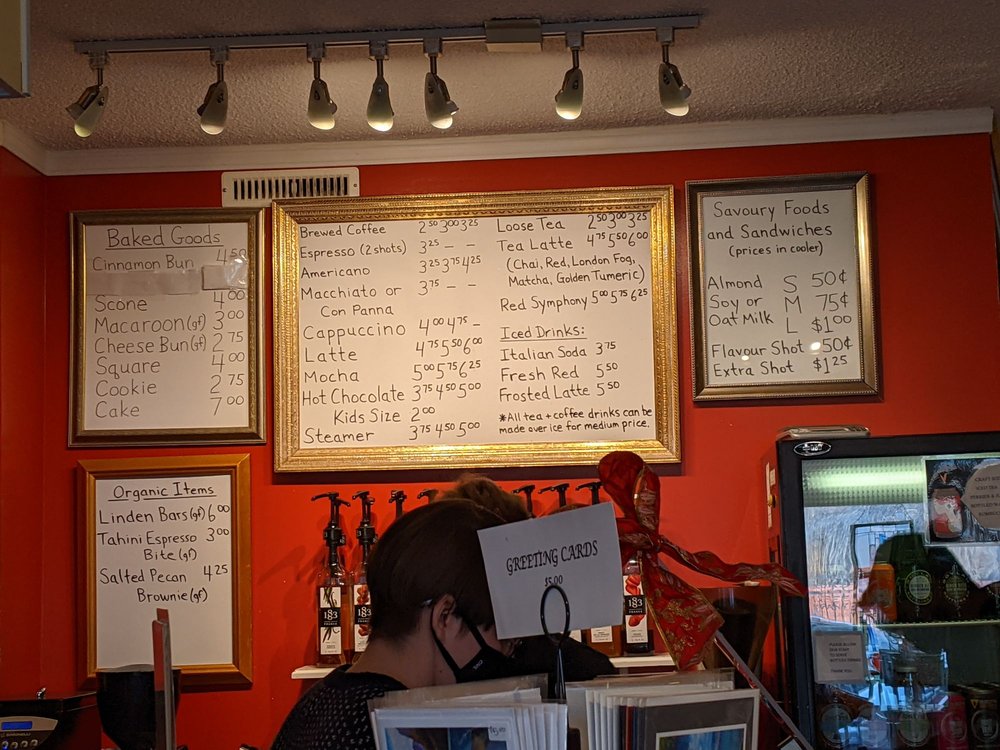 Baked Goods
Cinnamon Bun 4.50
Scone 4.00
Macaroon (gf) 3.00
Cheese Bun (gf) 2.75
Square 4.00
Cookie 2.75
Cake 7.00
Organic Items
Linden Bars (gf) 6.00
Tahini Espresso 3.00
Bite (gf)
Salted Pecan 4.25
Brownie (gf)
Brewed Coffee 2.50 3.00 3.25
Espresso (2 shots) 3.25 – –
Americano 3.25 3.75 4.25
Macchiato or 3.75 – –
Con Panna
Cappuccino 4.00 4.75 –
Latte 4.75 5.50 6.00
Mocha 5.00 5.75 6.25
Hot Chocolate 3.75 4.50 5.00
Kids Size 2.00
Steamer 3.75 4.50 5.00
Loose Tea 2.50 3.00 3.25
Tea Latte 4.75 5.50 6.00
(Chai, Red, London Fog,
Matcha, Golden Tumeric)
Red Symphony 5.00 5.75 6.25
Iced Drinks:
Italian Soda 3.75
Fresh Red 5.50
Frosted Latte 5.50
*All tea + coffee drinks can be
made over ice for medium price.
Savoury Foods
and Sandwiches
(prices in cooler)
Almond S 50¢
Soy or M 75¢
Oat Milk L $1.00
Flavour Shot 50¢
Extra Shot $1.25
GREETING CARDS
$5.00
183
183
183
PLEASE ALLOW
OUR STAFF
TO SERVE
BOTTLED DRINKS
THANK YOU